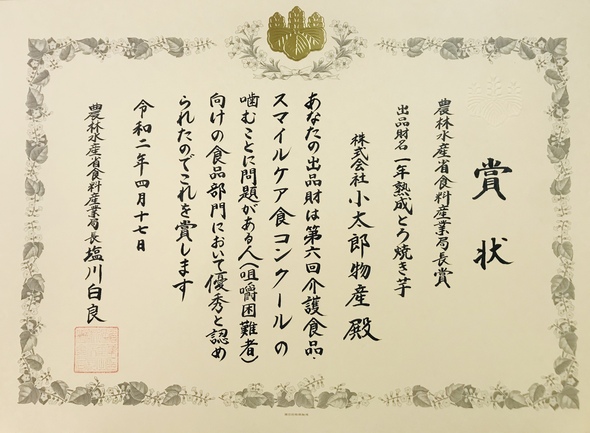 賞状
農林水産省食料産業局長賞
出品財名 一年熟成とろ焼き芋
株式会社 小太郎物産 殿
あなたの出品財は第六回介護食品・
スマイルケア食コンクールの
噛むことに問題がある人（咀嚼困難者）
向けの食品部門において優秀と認め
られたのでこれを賞します
令和二年四月十七日
農林水産省食料産業局長 塩川白良